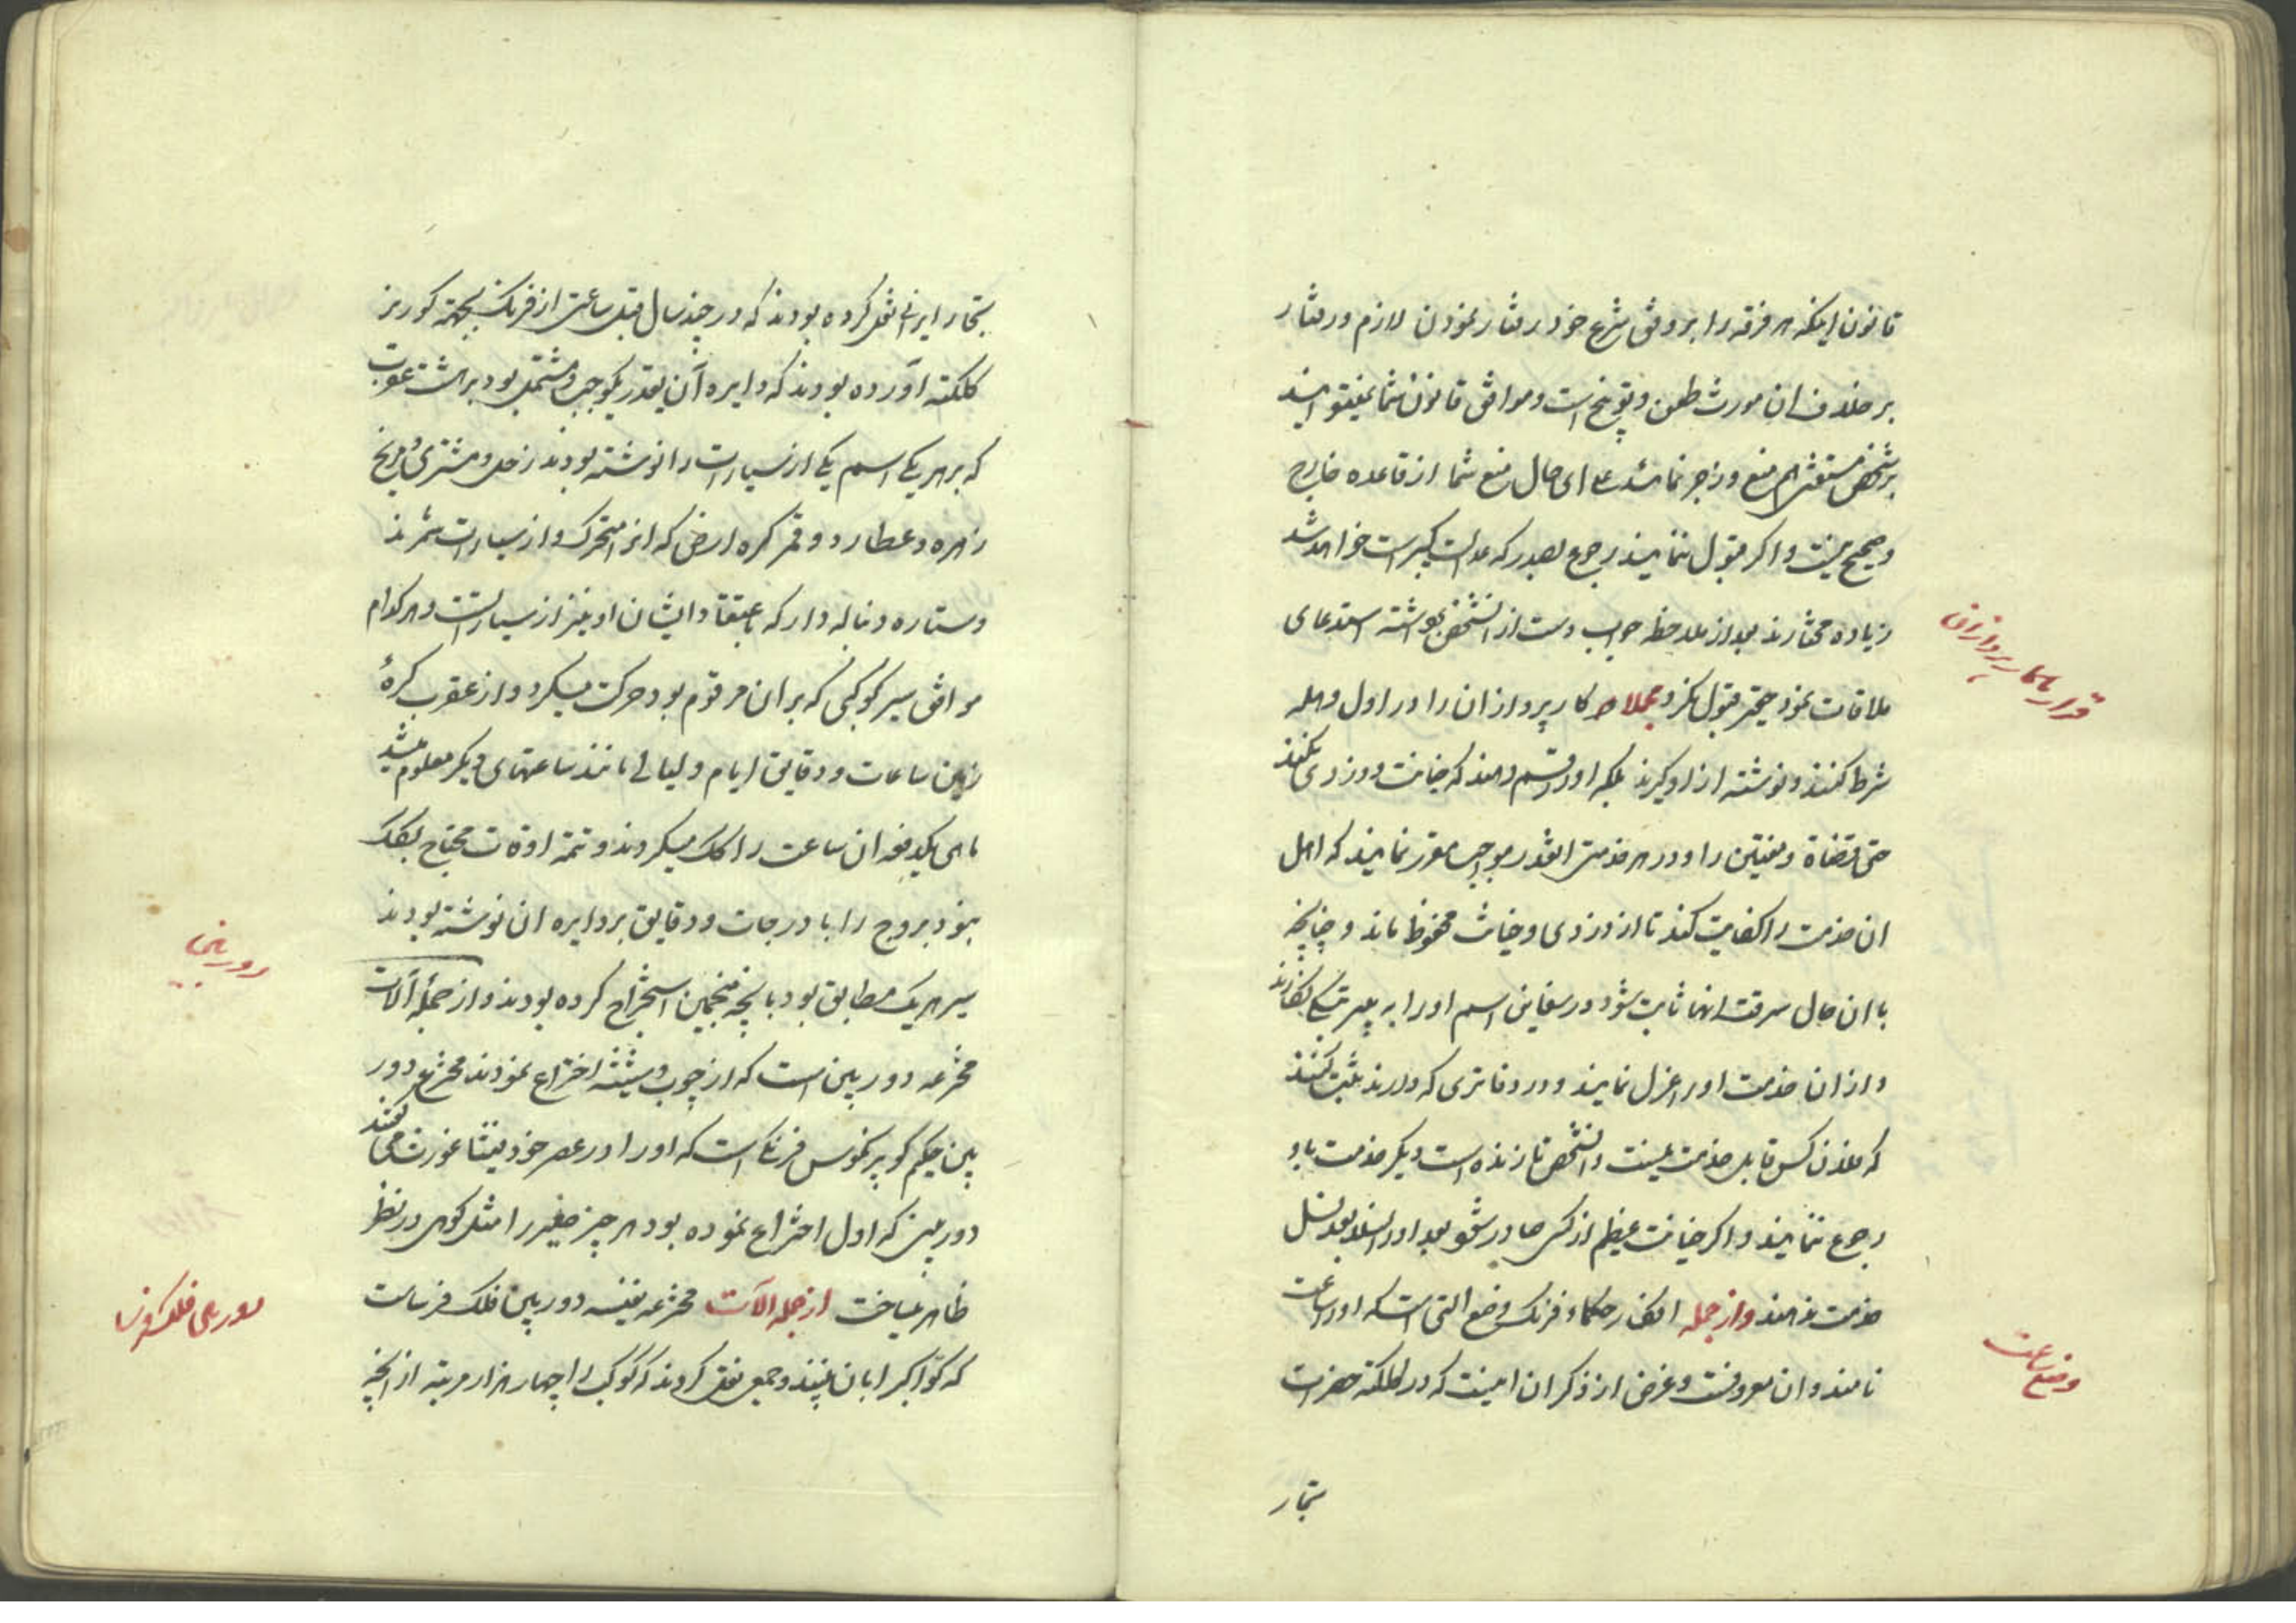 قانون اینکه هر فرقه را بر وفق شرع خود رفتار نمودن لازم و رفتار
بر خلاف ان مورث طعن و توبیخ است و موافق قانون شما نمیتوانید
بر شخص مستغنی هم منع و زجر نمائید علی ای حال منع شما از قاعده خارج
و صحیح نیست و اگر قبول ننمایید رجوع بصدر که عدالت کبیر است خواهد شد
زیاده مختارند بعد از ملاحظه جواب دست از انشخص برداشته استدعای
ملاقات نمود حقیر قبول نکرد مجملا کارپردازان را در اول وهله
شرط کنند و نوشته از او گیرند بلکه او را قسم دهند که خیانت و دزدی نکند
حتی قضاة و مفتین را و در هر خدمتی انقدر مواجب مقرر نمایند که اهل
ان خدمت را کفایت کند تا از دزدی و خیانت محفوظ ماند و چنانچه
با ان حال سرقت انها ثابت شود در اسم او را به بگذارند
و از ان خدمت او را عزل نمایند و در دفاتری که دارند ثبت کنند
که فلان کس قابل خدمت نیست و انشخص تا زنده است دیگر خدمت باو
رجوع ننمایند و اگر خیانت عظیم از کسی صادر شود بعد او را نسلا بعد نسل
خدمت ندهند و از جمله افکار حکماء فرنگ وضع التی است که او را ساعت
نامند و ان معروفست و غرض از ذکر ان اینست که در کلکته حضرات
تجار
قرارداد کارپردازان
وضع ساعت
تجار ایرانی نقل کرده بودند که در چند سال قبل ساعتی از فرنگ بجهة گورنر
کلکته آورده بودند که دایره آن بقدر یکوجب و مشتمل بود بر هشت عقرب
که بر هر یکی اسم یکی از سیارات را نوشته بودند زحل و مشتری و مریخ
زهره و عطارد و قمر کره ارض که انرا متحرک و از سیارات شمرند
و ستاره دنباله دار که باعتقاد ایشان او نیز از سیاراتست و هر کدام
موافق سیر کوکبی که بر ان مرقوم بود حرکت میکرد و از عقرب کرهٔ
زمین ساعات و دقایق ایام و لیالی مانند ساعتهای دیگر معلوم میشد
ماهی یکدفعه ان ساعت را کوک میکردند و تتمه اوقات محتاج بکوک
نبود بروج را با درجات و دقایق بر دایره ان نوشته بودند
سیر هر یک مطابق بود بانچه منجمین استخراج کرده بودند و از جمله آلات
مخترعه دوربین است که از چوب و شیشه اختراع نمودند مخترع دور
بین حکیم کوپرنکوس فرنگی است که او را در عصر خود فیثاغورث می گفتند
دوربین که اول اختراع نموده بود هر چیز صغیر را مثل کوهی در نظر
ظاهر میساخت از جمله الآت مخترعه نفیسه دوربین فلک فرساست
که کواکب را بان بینند و جمعی نقل کردند که کوکب را چهار هزار مرتبه از انچه
دوربین
دوربین فلک فرسا